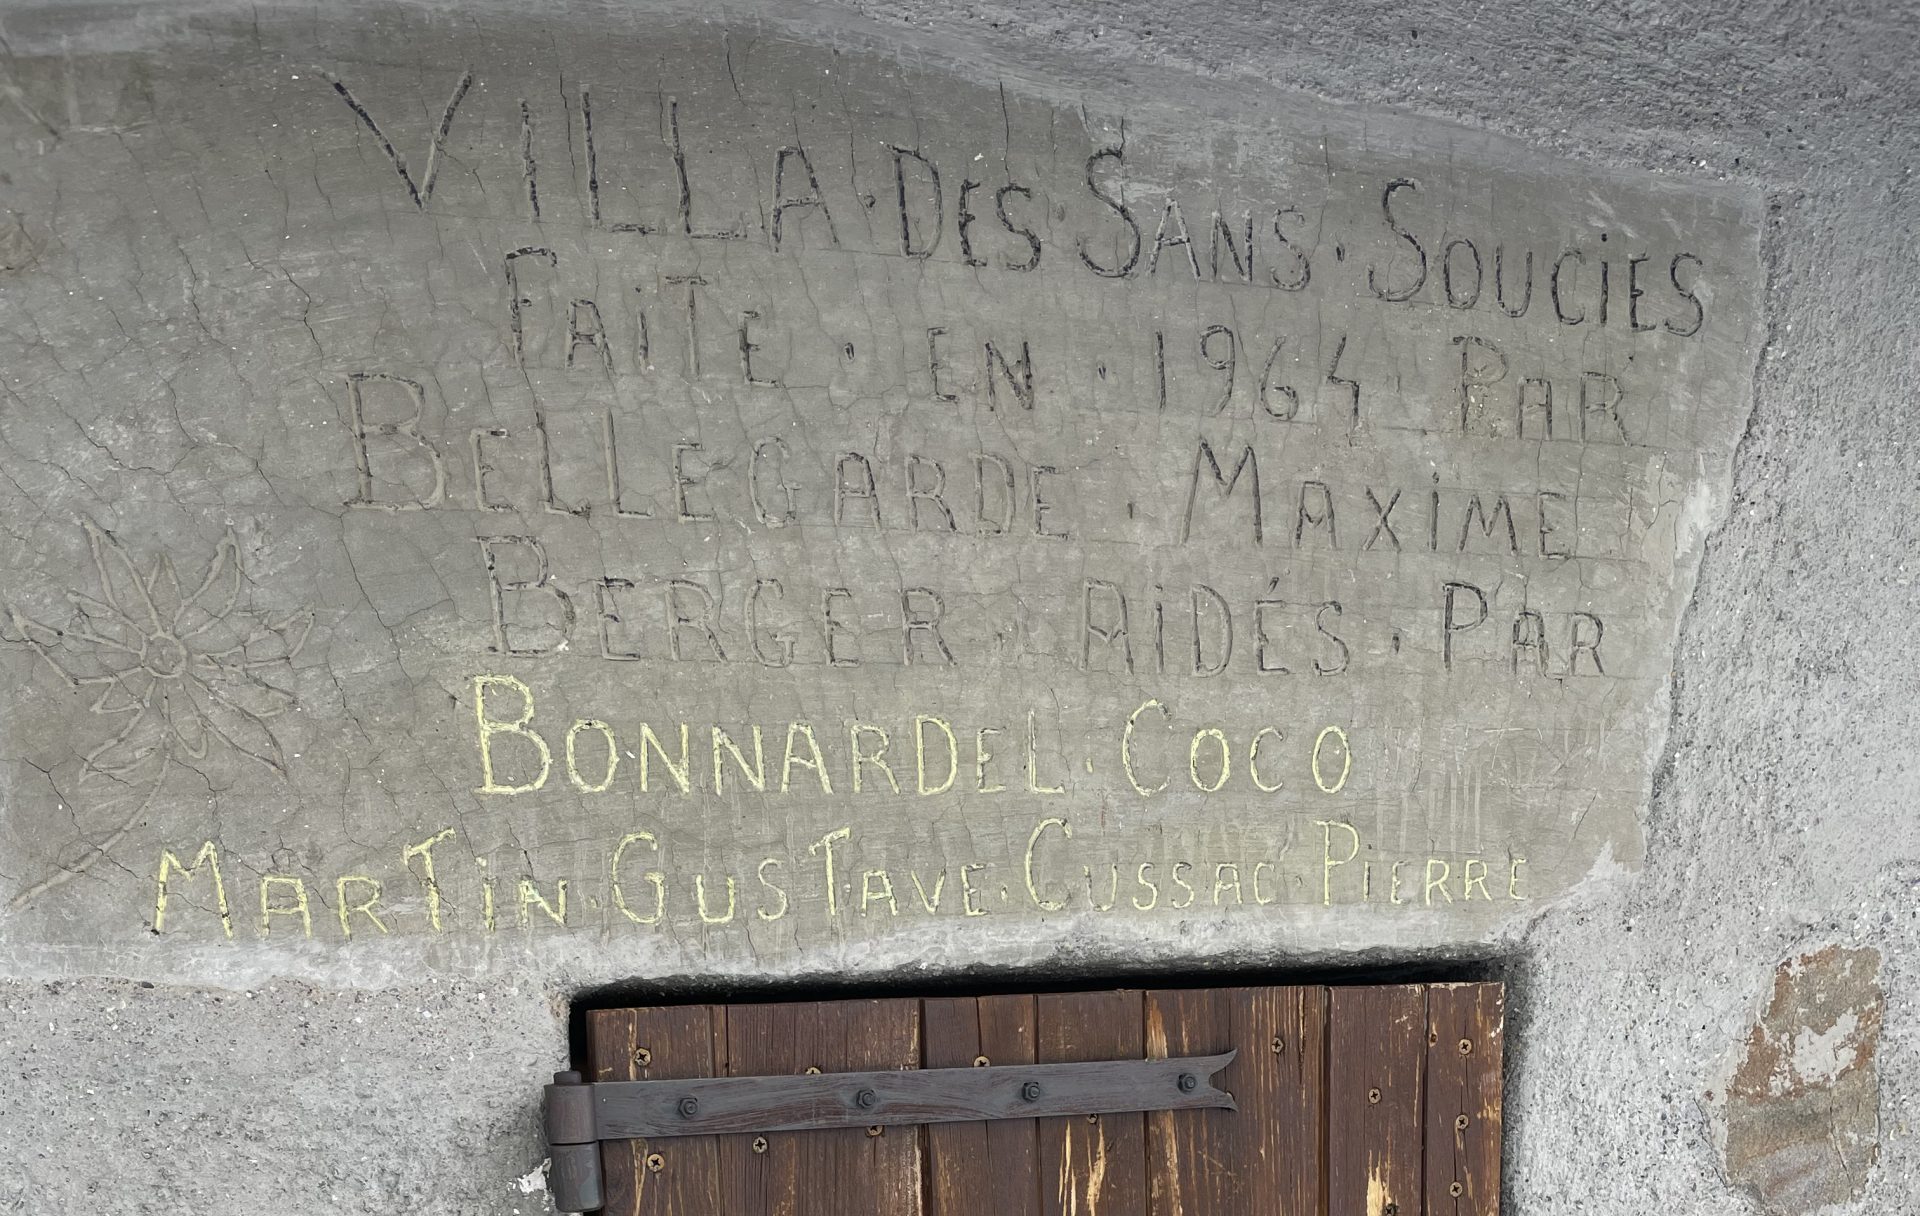 VILLA·DES·SANS·SOUCIES
FAiTE·EN·1964·PAR
BELLEGARDE·MAXiME
BERGER·AiDÉS·PAR
BONNARDEL·COCO
MARTiN·GUSTAVE·CUSSAC·PiERRE